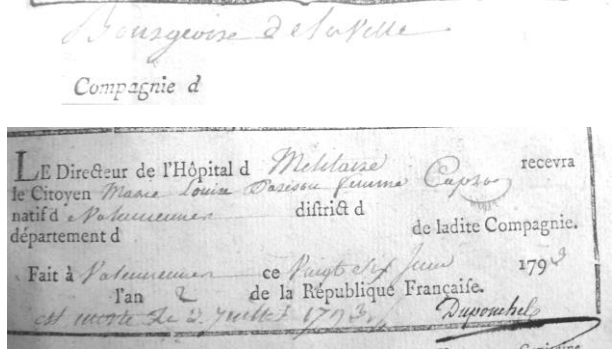 Bourgeoise de la Ville
Compagnie d
LE Directeur de l'Hôpital d Militaire recevra
le Citoyen Marie Louise femme
natif d Valenciennes district d
département d de ladite Compagnie.
Fait à Valenciennes ce Vingt Six Juin 1793
l'an 2 de la République Française.
est morte Le 2 Juillet 1793. Duponchel